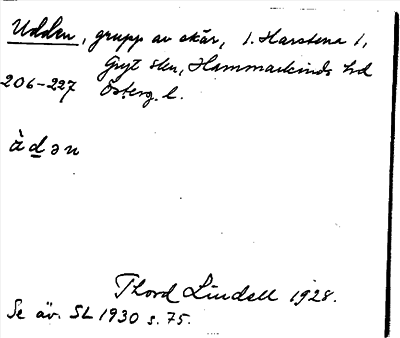 Udden, grupp av skär, 1. Harstena 1,
Gryt skn, Hammarkinds hd
206-227 Österg. l.
à d ə n
Thord Lindell 1928.
Se äv. SL 1930 s. 75.